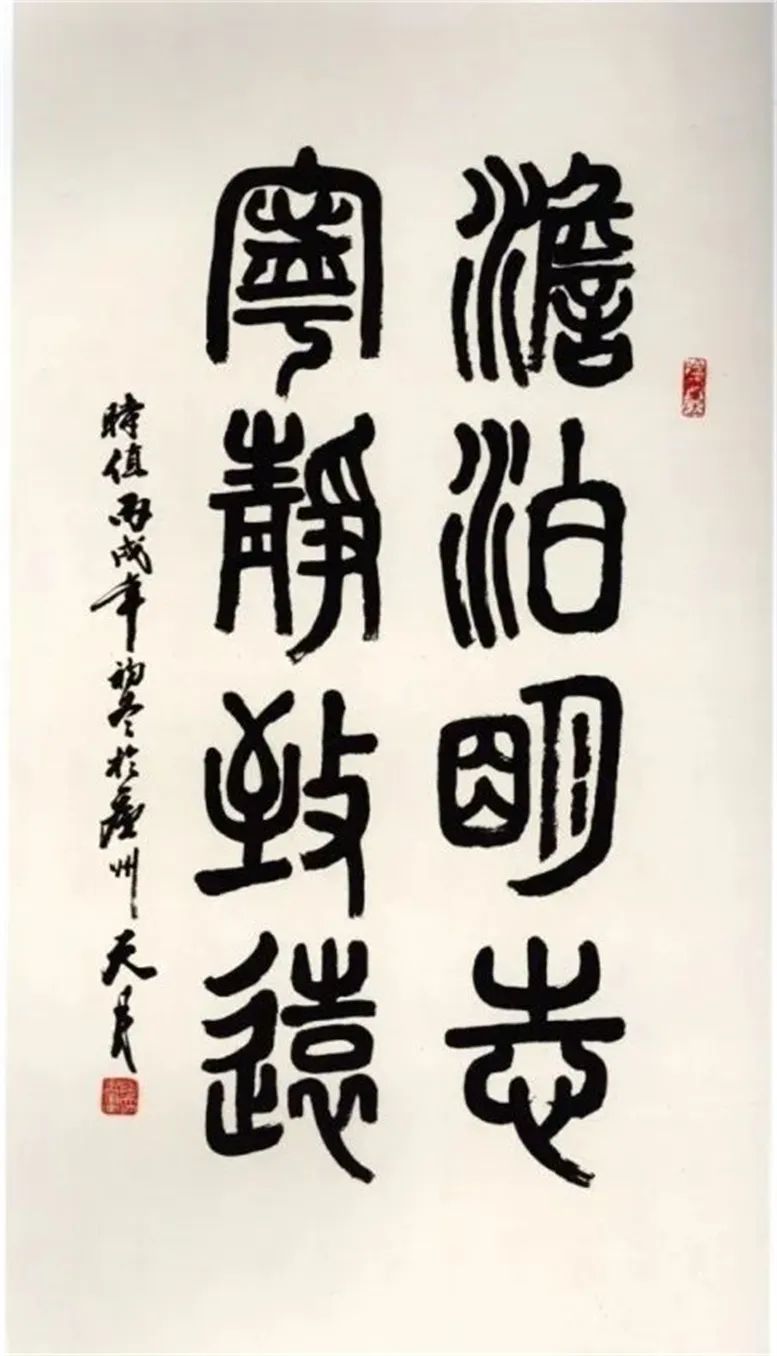 澹泊明志
寧靜致遠
時值丙戌年初冬於
州
天